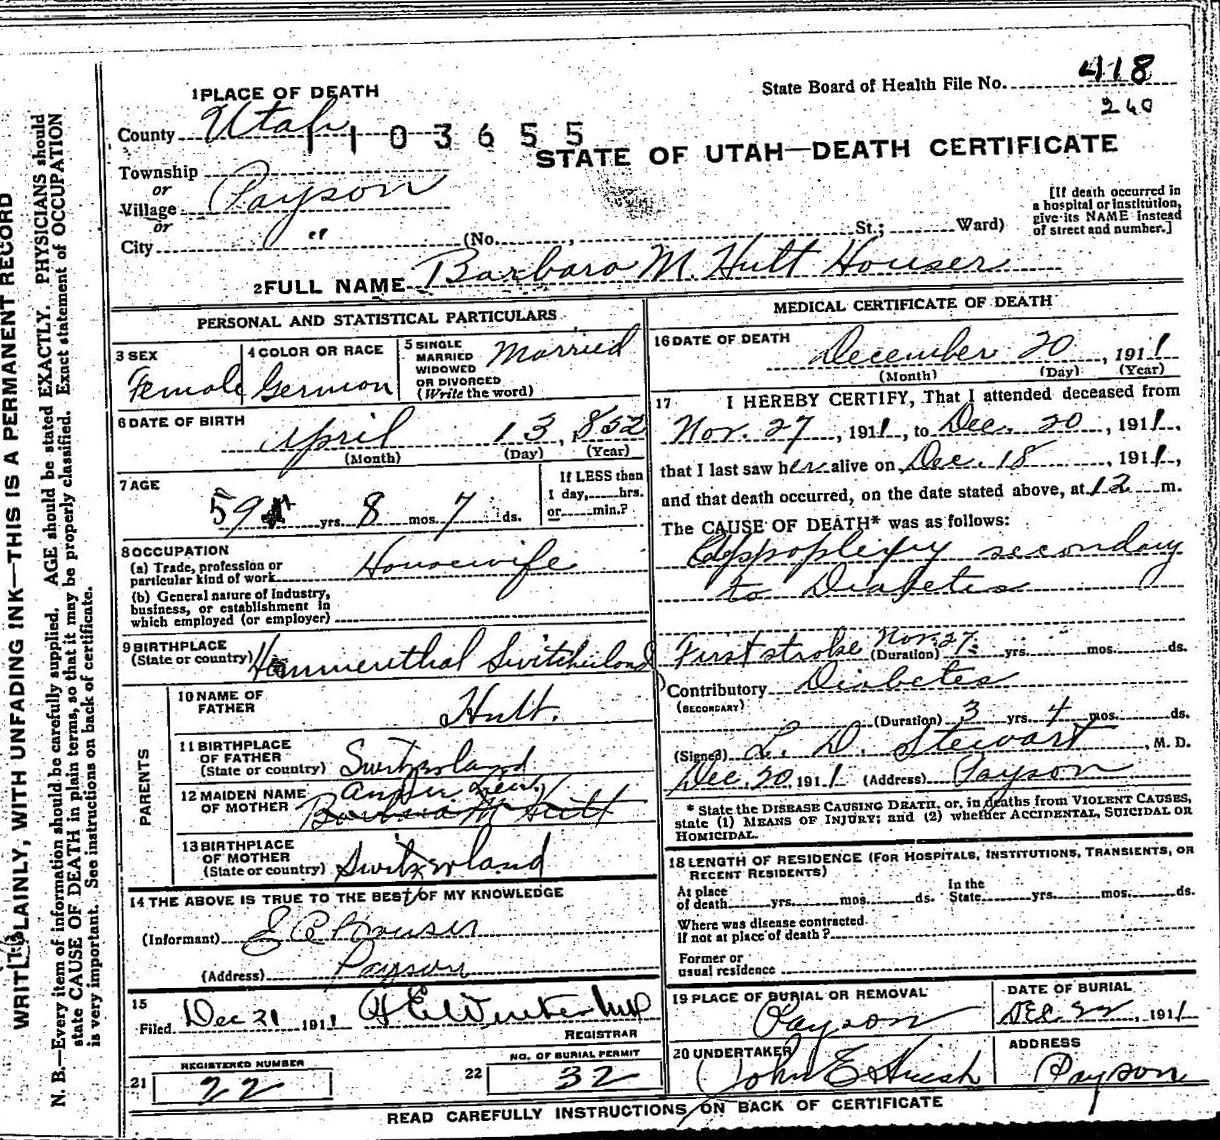 State Board of Health File No. 418
240
1 PLACE OF DEATH
County Utah
1103655
STATE OF UTAH—DEATH CERTIFICATE
Township
or
Village Payson
or
City "
(No. , St.; Ward)
[If death occurred in
a hospital or institution,
give its NAME instead
of street and number.]
2 FULL NAME Barbara M. Hutt Houser
PERSONAL AND STATISTICAL PARTICULARS
3 SEX
Female
4 COLOR OR RACE
German
5 SINGLE
MARRIED
WIDOWED
OR DIVORCED
(Write the word)
Married
6 DATE OF BIRTH
April 13, 852
(Month) (Day) (Year)
7 AGE
59 yrs. 8 mos. 7 ds.
If LESS than
1 day, hrs.
or min.?
8 OCCUPATION
(a) Trade, profession or
particular kind of work Housewife
(b) General nature of industry,
business, or establishment in
which employed (or employer)
9 BIRTHPLACE
(State or country) Hemmenthal Switcherland
PARENTS
10 NAME OF
FATHER
Hutt.
11 BIRTHPLACE
OF FATHER
(State or country) Switzerland
12 MAIDEN NAME
OF MOTHER
Barbara M Hutt
13 BIRTHPLACE
OF MOTHER
(State or country) Switzerland
14 THE ABOVE IS TRUE TO THE BEST OF MY KNOWLEDGE
(Informant) Houser
(Address) Payson
15
Filed Dec 21 1911
REGISTRAR
REGISTERED NUMBER
21 22
NO. OF BURIAL PERMIT
22 32
MEDICAL CERTIFICATE OF DEATH
16 DATE OF DEATH
December 20, 1911
(Month) (Day) (Year)
17 I HEREBY CERTIFY, That I attended deceased from
Nov. 27, 1911, to Dec. 20, 1911,
that I last saw her alive on Dec. 18, 1911,
and that death occurred, on the date stated above, at 12 m.
The CAUSE OF DEATH* was as follows:
Appoplexy secondary
to Diabetes
First stroke Nov. 27.
(Duration) yrs. mos. ds.
Contributory Diabetes
(SECONDARY)
(Duration) 3 yrs. 4 mos. ds.
(Signed) L. D. Stewart, M. D.
Dec. 20 1911 (Address) Payson
* State the DISEASE CAUSING DEATH, or, in deaths from VIOLENT CAUSES,
state (1) MEANS OF INJURY; and (2) whether ACCIDENTAL, SUICIDAL OR
HOMICIDAL.
18 LENGTH OF RESIDENCE (FOR HOSPITALS, INSTITUTIONS, TRANSIENTS, OR
RECENT RESIDENTS)
At place
of death yrs. mos. ds.
In the
State yrs. mos. ds.
Where was disease contracted
if not at place of death?
Former or
usual residence
19 PLACE OF BURIAL OR REMOVAL
Payson
DATE OF BURIAL
DEC. 22, 1911
20 UNDERTAKER
John E Huish
ADDRESS
Payson
READ CAREFULLY INSTRUCTIONS ON BACK OF CERTIFICATE
WRITE PLAINLY, WITH UNFADING INK—THIS IS A PERMANENT RECORD
N. B.—Every item of information should be carefully supplied. AGE should be stated EXACTLY. PHYSICIANS should
state CAUSE OF DEATH in plain terms, so that it may be properly classified. Exact statement of OCCUPATION
is very important. See instructions on back of certificate.